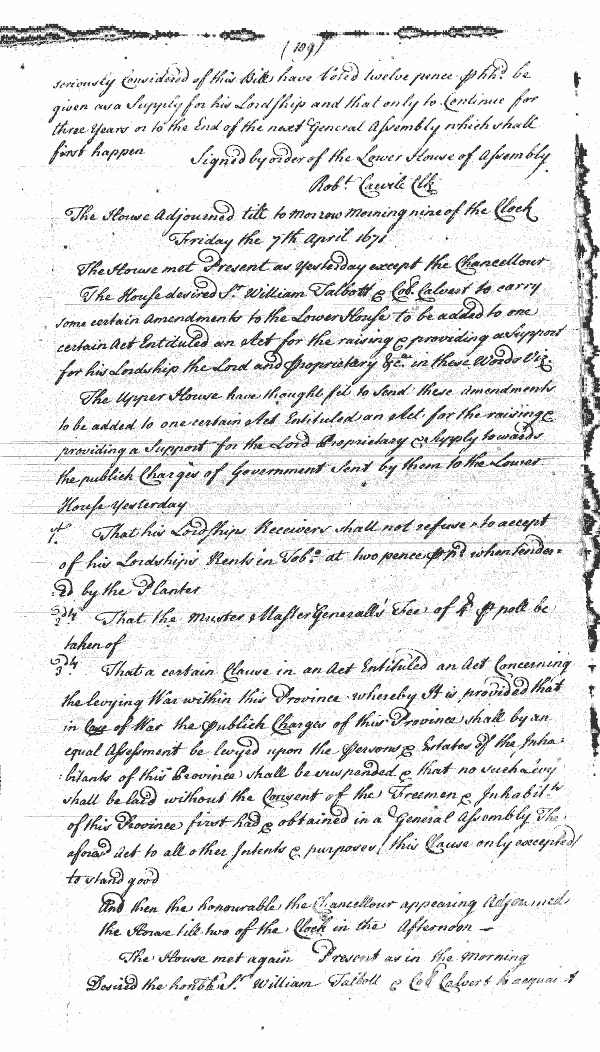 (109)
seriously Considered of this Bill have Voted twelve pence ⅌ hhd be
given as a Supply for his Lordship and that only to Continue for
three Years or to the End of the next General Assembly which shall
first happen
Signed by order of the Lower House of Assembly
Robt. Clk
The House Adjourned till to morrow Morning nine of the Clock
Friday the 7th April 1671
The House met Present as Yesterday except the Chancellour
The House desired Sr. William Talbott & Coll. Calvert to carry
some certain Amendments to the Lower House to be added to one
certain Act Entituled an Act for the raising & providing a Support
for his Lordship the Lord and Proprietary &ca. in these Words Viz.
The Upper House have thought fit to Send these Amendments
to be added to one certain Act Entituled an Act for the raising &
providing a Support for the Lord Proprietary & Supply towards
the publick Charges of Government Sent by them to the Lower
House Yesterday
That his Lordships Receivers shall not refuse to accept
of his Lordship's Rents in Tobo. at two pence ⅌ pd. when tender=
:ed by the Planter
2dly That the Muster Master Generall's Fee of 4 ⅌ poll be
taken of
3dly That a certain Clause in an Act Entituled an Act Concerning
the levying War within this Province whereby It is provided that
in Case of War the publick Charges of this Province shall by an
equal Assessment be levyed upon the Persons & Estates of the Inha=
:bitants of this Province shall be suspended & that no such Levy
shall be laid without the Consent of the Freemen & Inhabits
of this Province first had & obtained in a General Assembly The
aforesd Act to all other Intents & purposes (this Clause only excepted)
to stand good
And then the honourable the Chancellour appearing Adjourned
the House till two of the Clock in the Afternoon —
The House met again Present as in the Morning
Desired the honble Sr. William Talbott & Coll Calvert to acquaint